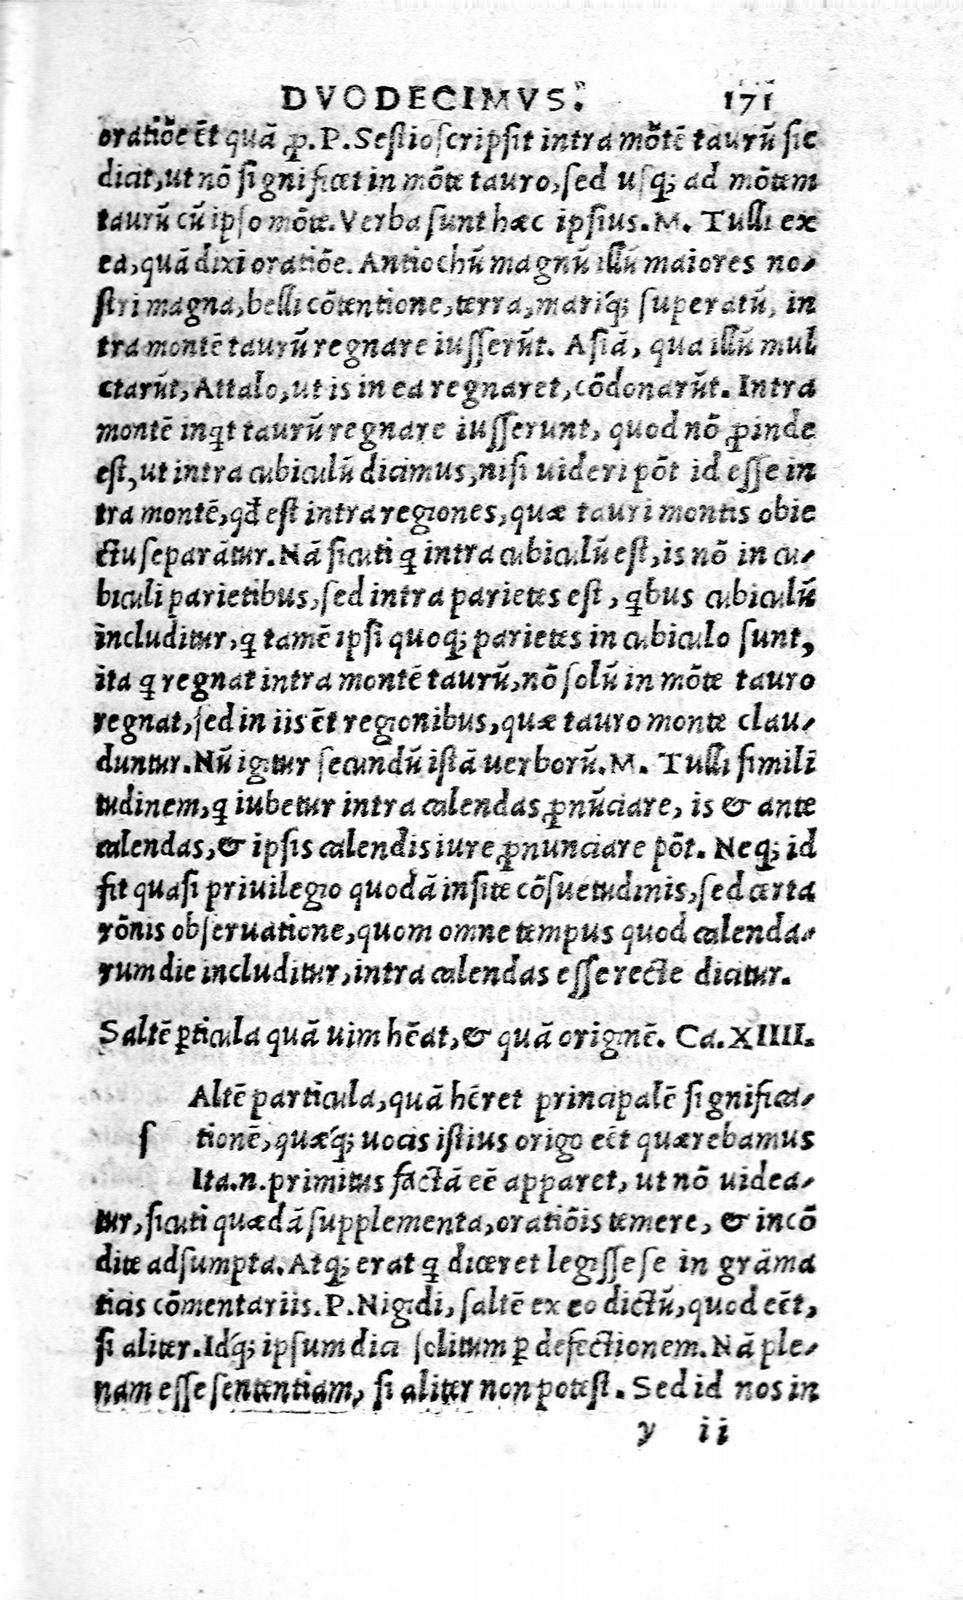 DVODECIMVS. 171
oratiõe ẽt quã ꝓ. P. Seſtio ſcripſit intra mõtẽ taurũ ſic
dicit, ut nõ ſignificet in mõte tauro, ſed uſq; ad mõtem
taurũ cũ ipſo mõte. Verba ſunt hæc ipſius. M. Tulli ex
ea, quã dixi oratiõe. Antiochũ magnũ illũ maiores no-
ſtri magna, belli cõtentione, terra, mariq́; ſuperatũ, in
tra montẽ taurũ regnare iuſſerũt. Aſiã, qua illũ mul
ctarũt, Attalo, ut is in ea regnaret, cõdonarũt. Intra
montẽ inqt taurũ regnare iuſſerunt, quod nõ ꝓinde
eſt, ut intra cubiculũ dicimus, niſi uideri põt id eſſe in
tra montẽ, qđ eſt intra regiones, quæ tauri montis obie
ctu ſeparãtur. Nã ſicuti q intra cubiculũ eſt, is nõ in cu-
biculi parietibus, ſed intra parietes eſt, qbus cubiculũ
includitur, q tamẽ ipſi quoq; parietes in cubiculo ſunt,
ita q regnat intra montẽ taurũ, nõ ſolũ in mõte tauro
regnat, ſed in iis ẽt regionibus, quæ tauro monte clau-
duntur. Nũ igitur ſecundũ iſtã uerborũ. M. Tulli ſimili
tudinem, q iubetur intra calendas ꝓnũciare, is & ante
calendas, & ipſis calendis iure ꝓnunciare põt. Neq; id
fit quaſi priuilegio quodã inſite cõſuetudinis, ſed certa
rõnis obſeruatione, quom omne tempus quod calenda-
rum die includitur, intra calendas eſſe recte dicitur.
Saltẽ ꝑticula quã uim hẽat, & quã originẽ. Ca. XIIII.
Altẽ particula, quã hẽret principalẽ ſignifica-
ſ tionẽ, quæq́; uocis iſtius origo eẽt quærebamus
Ita.n.primitus factã eẽ apparet, ut nõ uidea-
tur, ſicuti quædã ſupplementa, oratiõis temere, & incõ
dite adſumpta. Atq; erat q diceret legiſſe ſe in grãma
ticis cõmentariis. P. Nigidi, ſaltẽ ex eo dictũ, quod eẽt,
ſi aliter. Idq́; ipſum dici ſolitum ꝑ defectionem. Nã ple-
nam eſſe ſententiam, ſi aliter non poteſt. Sed id nos in
y ii